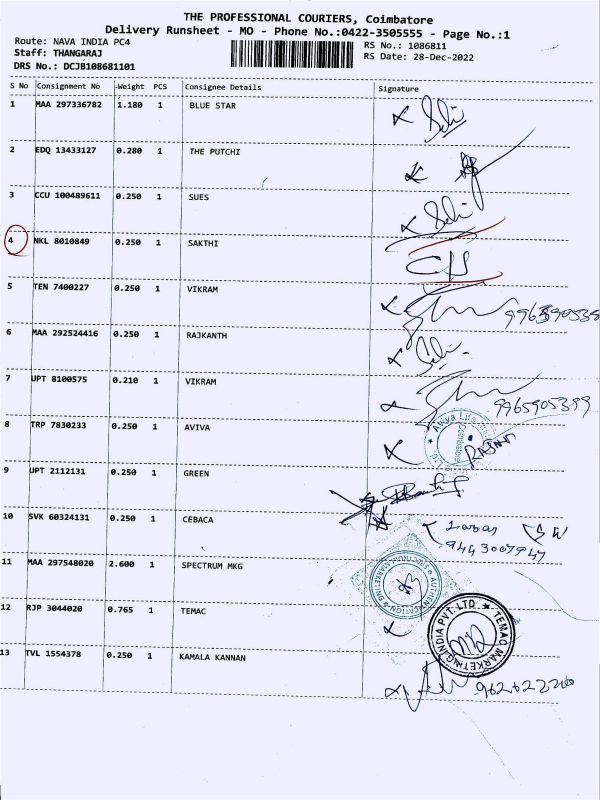 THE PROFESSIONAL COURIERS, Coimbatore
Delivery Runsheet - MO - Phone No.:0422-3505555 - Page No.:1
Route: NAVA INDIA PC4 RS No.: 1086811
Staff: THANGARAJ RS Date: 28-Dec-2022
DRS No.: DCJB108681101
S No Consignment No Weight PCS Consignee Details Signature
1 MAA 297336782 1.180 1 BLUE STAR
2 EDQ 13433127 0.280 1 THE PUTCHI
3 CCU 100489611 0.250 1 SUES
4 NKL 8010849 0.250 1 SAKTHI
5 TEN 7400227 0.250 1 VIKRAM
6 MAA 292524416 0.250 1 RAJKANTH
7 UPT 8100575 0.210 1 VIKRAM 9965905399
8 TRP 7830233 0.250 1 AVIVA
9 UPT 2112131 0.250 1 GREEN
10 SVK 60324131 0.250 1 CEBACA
9443007947
11 MAA 297548020 2.600 1 SPECTRUM MKG
12 RJP 3044020 0.765 1 TEMAC TEMAC MARKETING INDIA PVT. LTD.
13 TVL 1554378 0.250 1 KAMALA KANNAN